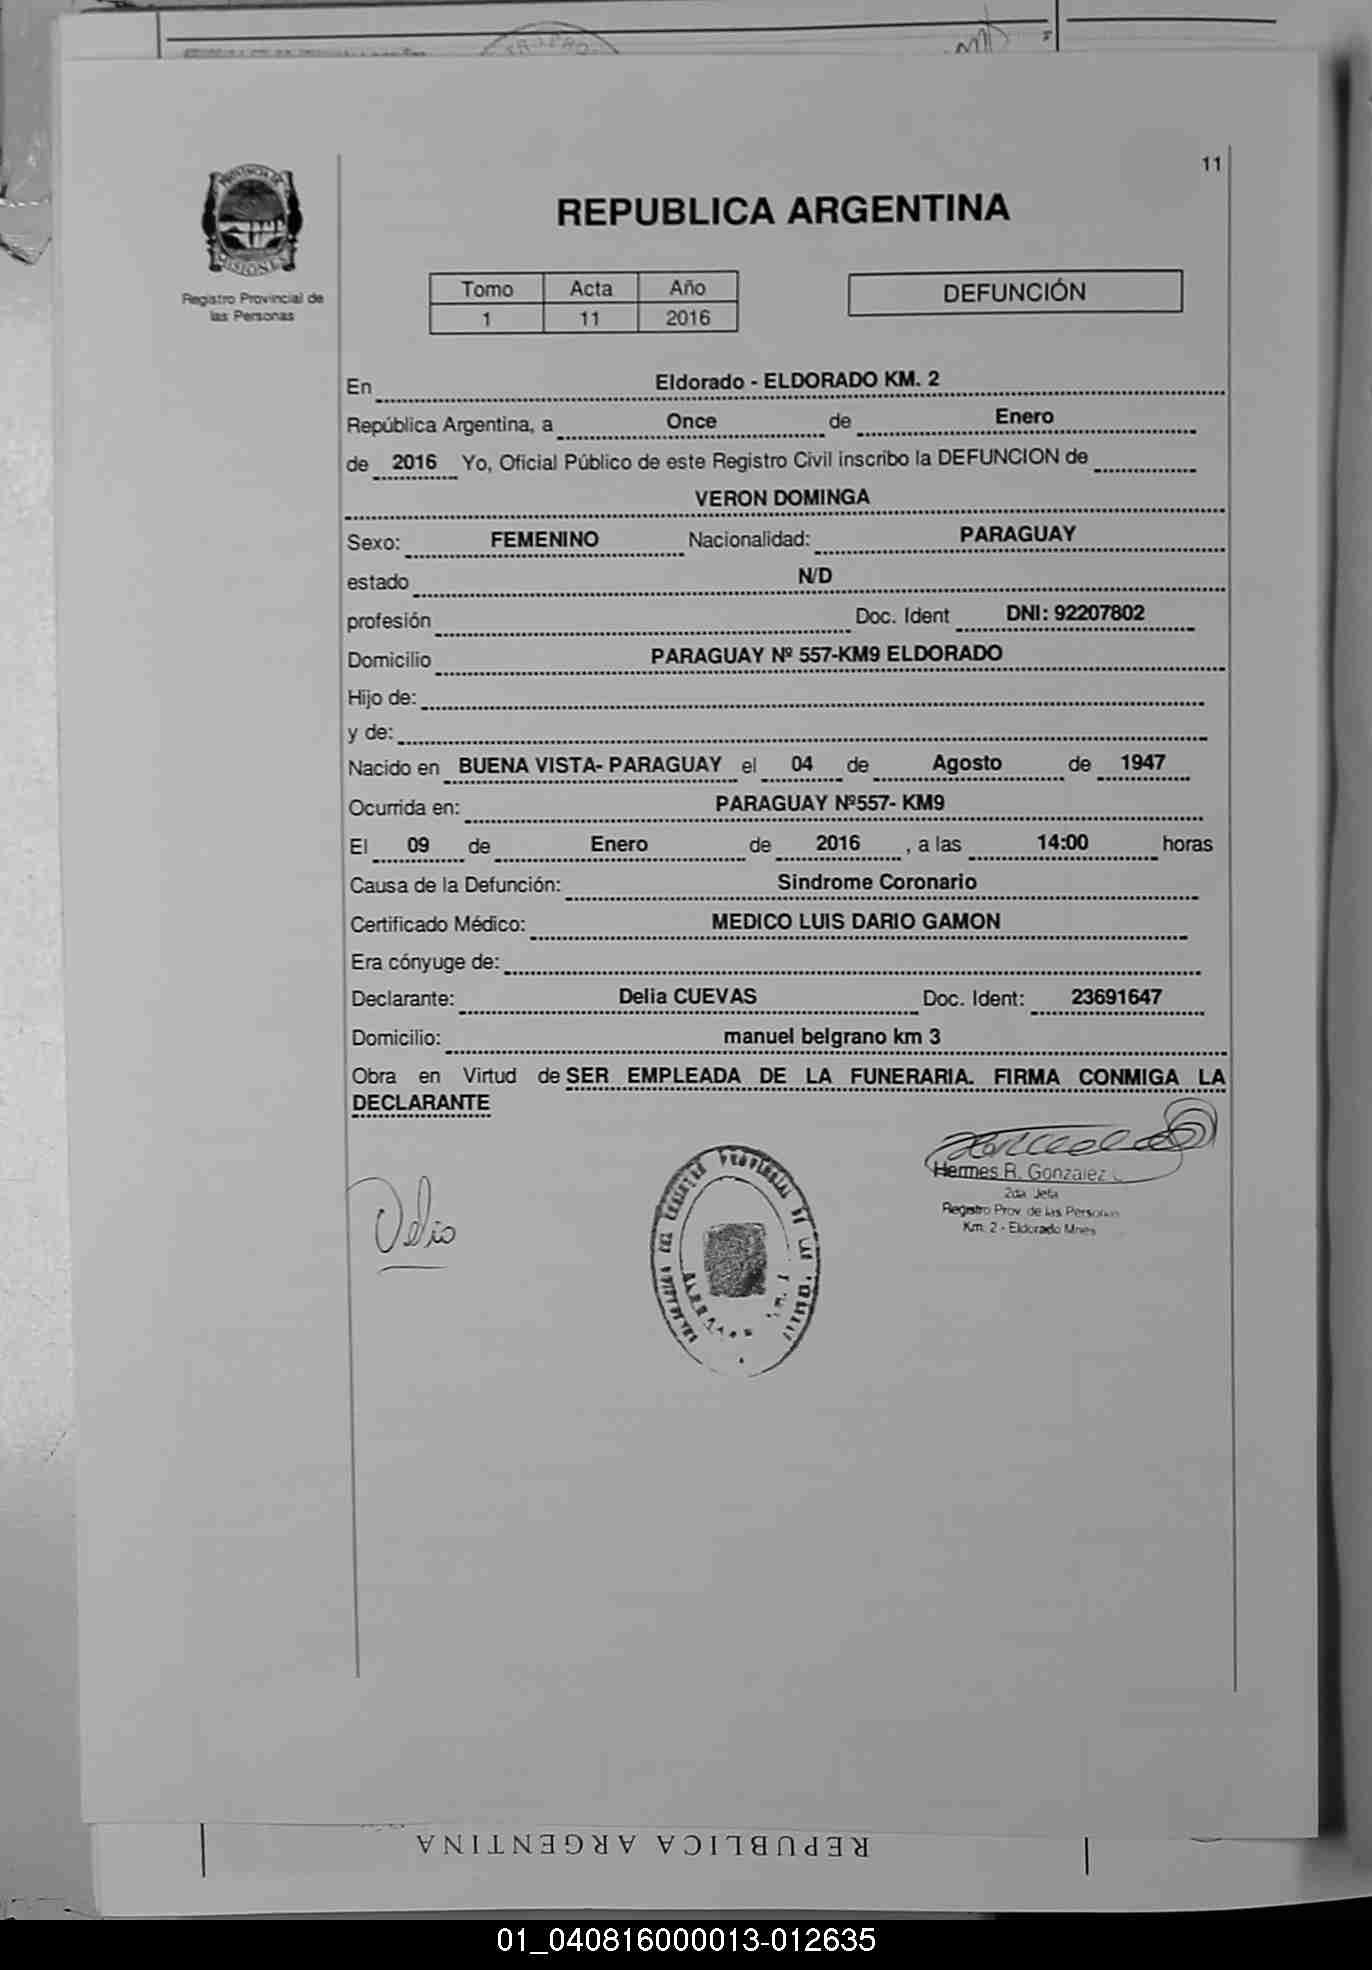 11
PROVINCIA DE
MISIONES
Registro Provincial de
las Personas
REPUBLICA ARGENTINA
Tomo Acta Año
1 11 2016
DEFUNCIÓN
En Eldorado - ELDORADO KM. 2
República Argentina, a Once de Enero
de 2016 Yo, Oficial Público de este Registro Civil inscribo la DEFUNCION de
VERON DOMINGA
Sexo: FEMENINO Nacionalidad: PARAGUAY
estado N/D
profesión Doc. Ident DNI: 92207802
Domicilio PARAGUAY Nº 557-KM9 ELDORADO
Hijo de:
y de:
Nacido en BUENA VISTA- PARAGUAY el 04 de Agosto de 1947
Ocurrida en: PARAGUAY Nº557- KM9
El 09 de Enero de 2016 , a las 14:00 horas
Causa de la Defunción: Sindrome Coronario
Certificado Médico: MEDICO LUIS DARIO GAMON
Era cónyuge de:
Declarante: Delia CUEVAS Doc. Ident: 23691647
Domicilio: manuel belgrano km 3
Obra en Virtud de SER EMPLEADA DE LA FUNERARIA. FIRMA CONMIGA LA
DECLARANTE
Hermes R. Gonzalez
2da. Jefa
Registro Prov. de las Personas
Km. 2 - Eldorado Mnes
PROVINCIAL DE LAS
REPUBLICA ARGENTINA
01_040816000013-012635